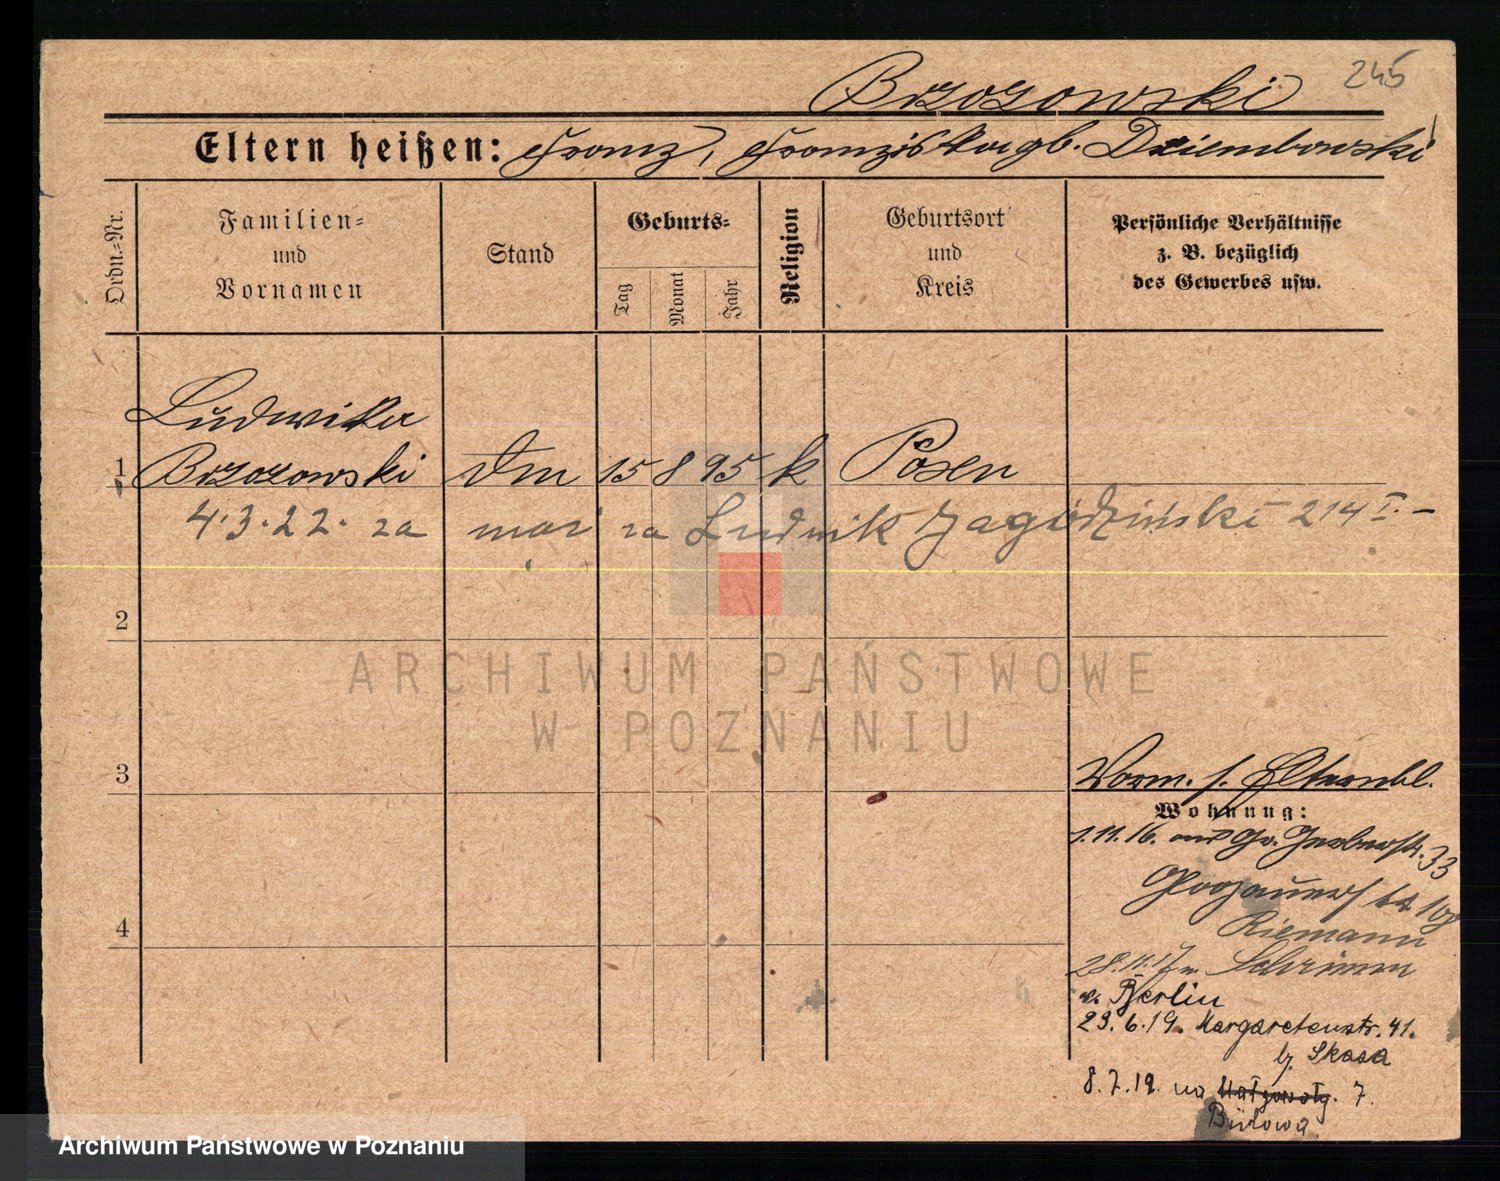 245
Brzozowski
Eltern heißen: Franz, Franziska gb. Dziembowski
Ordn.-Nr.
Familien- und Vornamen
Stand
Geburts-
Tag
Monat
Jahr
Religion
Geburtsort und Kreis
Persönliche Verhältnisse
z. B. bezüglich
des Gewerbes usw.
Ludwika
1 Brzozowski 15 8 95 k Posen
4.3.22. za mąż za Ludwik Jagodziński 214 I. -
2
ARCHIWUM PAŃSTWOWE
W POZNANIU
3
Vorm. s. Elternbl.
Wohnung:
1.11.16. Gr. Gerberstr. 33
4
Riemann
28.11.17 n. Schrimm
v. Berlin
23.6.19. Margaretenstr. 41.
b. Skasa
8.7.19. na 7.
Bülowa
Archiwum Państwowe w Poznaniu